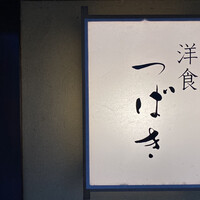 洋食
つばき